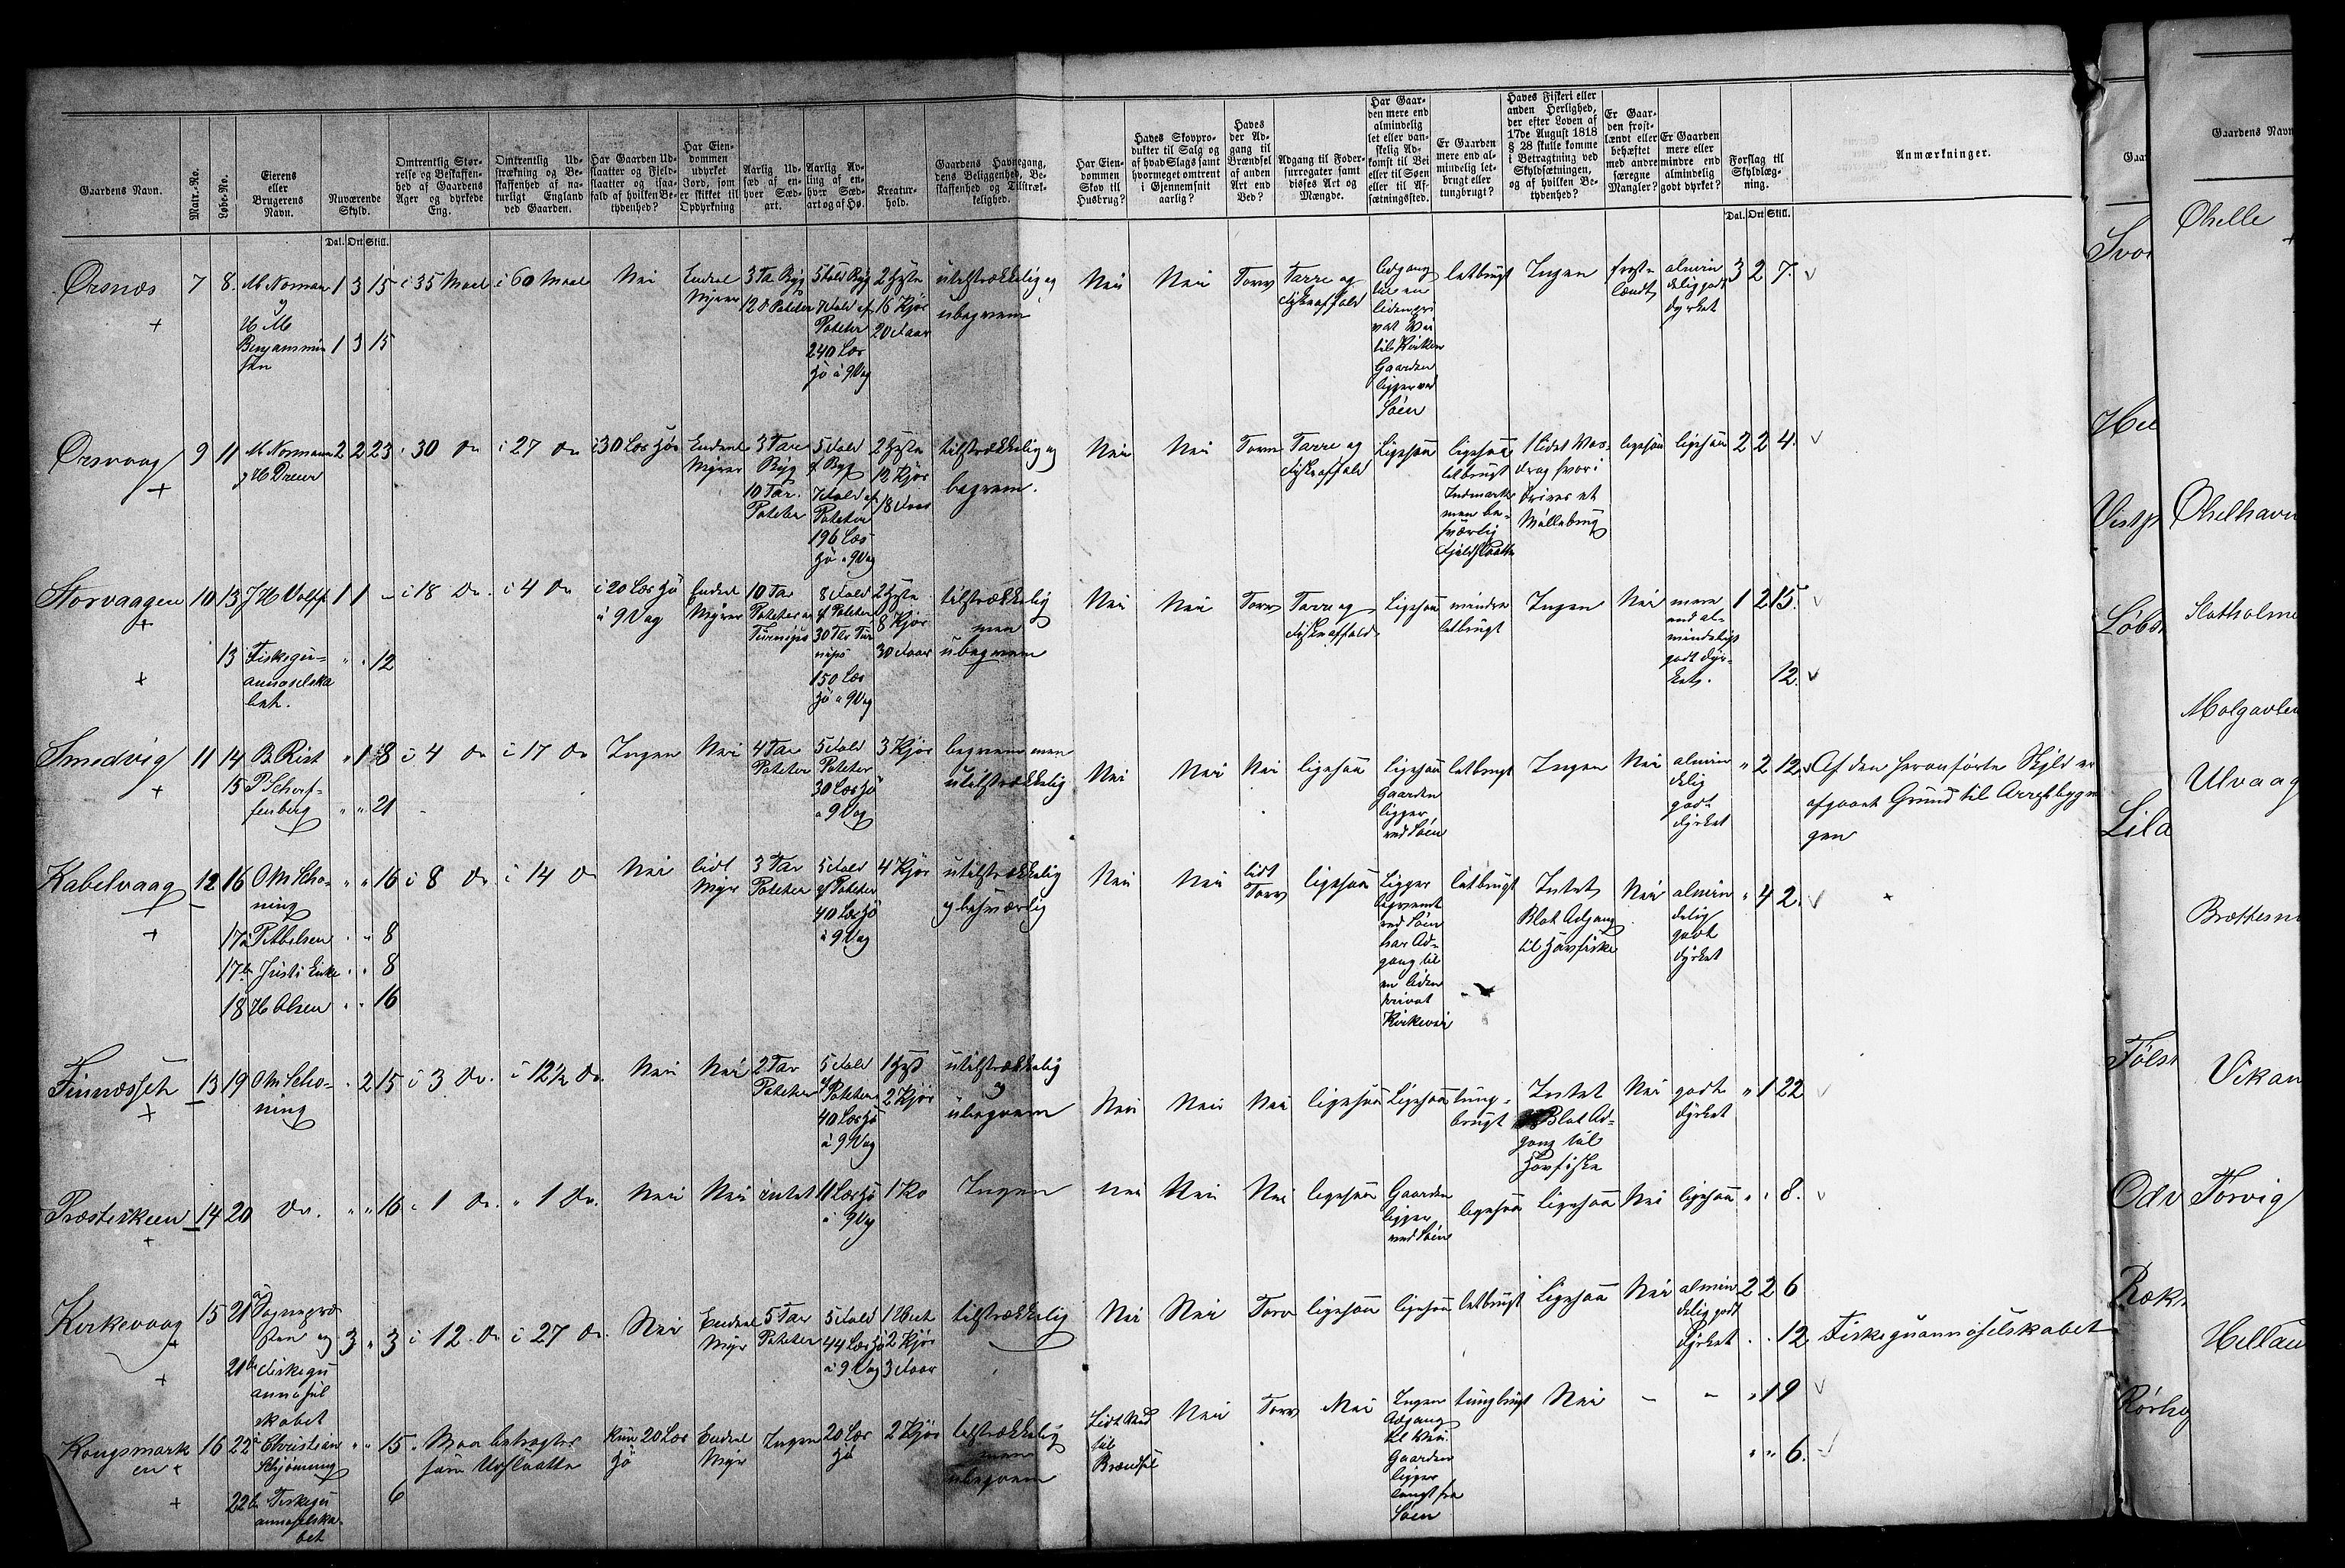 Gaardens Navn.
Matr.-No.
Løbe-No.
Eierens eller Brugerens Navn.
Nuværende Skyld.
Dal. Ort Skill.
Omtrentlig Størrelse og Beskaffenhed af Gaardens Ager og dyrkede Eng.
Omtrentlig Udstrækning og Beskaffenhed af naturligt England ved Gaarden.
Har Gaarden Udslaatter og Fieldslaatter og isaafald af hvilken Betydenhed?
Har Eiendommen udyrket Jord, som er skikket til Opdyrkning
Aarlig Udsæd af enhver Sædart.
Aarlig Avling af enhver Sædart og af Hø.
Kreaturhold.
Gaardens Havnegang, dens Beliggenhed, Beskaffenhed og Tilstrækkelighed.
Har Eiendommen Skov til Husbrug?
Haves Skovprodukter til Salg og af hvad Slags samt hvormeget omtrent i Gjennemsnit aarlig?
Haves der Adgang til Brændsel af anden Art end Ved?
Adgang til Fodersurrogater samt disses Art og Mængde.
Har Gaarden mere end almindelig let eller vanskelig Adkomst til Vei eller til Søen eller til Afsætningssted.
Er Gaarden mere end almindelig letbrugt eller tungbrugt?
Haves Fiskeri eller anden Herlighed, der efter Loven af 17de August 1818 § 28 skulle komme i Betragtning ved Skyldsætningen, og af hvilken Betydenhed?
Er Gaarden frostlændt eller behæftet med andre særegne Mangler?
Er Gaarden mere eller mindre end almindelig godt dyrket?
Forslag til Skyldlægning.
Dal. Ort Skill.
Anmærkninger.
Ørsnæs 7 8. M Norman 1 3 15 i 35 Maal i 60 Maal Nei Endeel Myrer 3 Tr Byg 12 d Poteter 5 Fold Byg 7 Fold af Poteter 240 Læs Hø à 9 Vog 2 Heste 16 Kjør 20 Faar utilstrækkelig og ubeqvem Nei Nei Torv Tarre og Fiskeaffald Adgang til en liden privat Vei til Kirken Gaarden ligger ved Søen letbrugt Ingen frostlændt almindelig godt dyrket 3 2 7.
H M Benjaminsen 1 3 15
Ørsvaag 9 11 M Normann og H Dreier 2 2 23 i 30 Do i 27 Do i 30 Læs Hø Endeel Myrer 3 Tdr Byg 10 Tdr. Poteter 5 Fold af Byg 7 Fold af Poteter 196 Læs Hø a 9 Vog 2 Heste 12 Kjør 18 Faar tilstrækkelig og beqvem. Nei Nei Torv Tarre og Fiskeaffald Ligesaa ligesaa letbrugt Indmark men besværlig Fjeldslaatte 1 lidet Vasdrag hvori drives et Møllebrug ligesaa ligesaa 2 2 4.
Storvaagen 10 13 J H Wolff 1 1 - i 18 Do. i 4 Do i 20 Læs Hø à 9 Vog Endeel Myrer 10 Tdr Poteter Turnips 8 Fold af Poteter 30 Tdr Turnips 150 Læs Hø a 9 Vog 2 Heste 8 Kjør 30 Faar tilstrækkelig men ubeqvem Nei Nei Torv Tarre og Fiskeaffald Ligesaa mindre letbrugt Ingen Nei mere end almindeligt godt dyrket. 1 2 15.
13 Fiskeguannoselskabet. " " 12 12.
Smedvig 11 14 B. Rist " 1 8 i 4 Do i 17 Do Ingen Nei 4 Tdr Poteter 5 Fold Poteter 30 Læs Hø a 9 Vog 3 Kjør beqvem men utilstrækkelig Nei Nei Nei ligesaa ligesaa Gaarden ligger ved Søen letbrugt Ingen Nei almindelig godt dyrket " 2 12. Af den heranførte Skyld er afgaaet Grund til Arrestbygningen
15 P Scharffenberg " " 21
Kabelvaag 12 16 O M Schøning " " 16 i 8 Do i 14 Do Nei lidt Myr 3 Tdr Poteter 5 Fold af Poteter 40 Læs Hø a 9 Vog 4 Kjør utilstrækkelig og besværlig Nei Nei lidt Torv ligesaa Ligger beqvemt ved Søen har Adgang til en liden privat Kirkevei letbrugt Intet Blot Adgang til Havfiske Nei almindelig godt dyrket " 4 2.
17a P Abelsen " " 8
17b Justi Enke " " 8
18 H Olsen " " 16
Finnæsset 13 19 O M Schøning " 2 15 i 3 Do. i 12½ Do. Nei Nei 2 Tdr Poteter 5 Fold af Poteter 40 Læs Hø à 9 Vog 1 Hest 2 Kjør utilstrækkelig og ubeqvem Nei Nei Nei ligesaa Ligesaa tungbrugt Intet Blot Adgang til Havfiske Nei godt dyrket " 1 22
Præsteskeen 14 20 Do. " " 16 i 1 Do. " 1 Do. Nei Nei intet 11 Læs Hø a 9 Vog 1 Ko Ingen Nei Nei Nei ligesaa Gaarden ligger ved Søen ligesaa ligesaa Nei ligesaa " " 8.
Kirkevaag 15 21a Sognepræsten og 3 " 3 i 12 Do i 27 Do. Nei Endeel Myr 5 Tdr Poteter 5 Fold 44 Læs Hø à 9 Vog 1 Hest 2 Kjør 3 Faar tilstrækkelig Nei Nei Torv ligesaa ligesaa letbrugt Ligesaa Nei almindelig godt dyrket 2 2 6
21b Fiskeguannoselskabet " " 12 Fiskeguannoselskabet
Kongsmarken 16 22a Christian Schjønning " " 15 Maa betragtes som Udslaatte Kun 20 Læs Hø Endeel Myr Ingen 20 Læs Hø 2 Kjør tilstrækkelig men ubeqvem Lidt Ved til Brændsel Nei Torv Nei Ingen Adgang til Vei. Gaarden ligger langt fra Søen tungbrugt Nei - - " 1 9
22b Fiskeguannoselskabet 6 " " 6.
Gaardens Navn
Svol
Hel
Løbs
Lila
Følst
Odv
Røkn
Rørhø
Ohelle
Ohelhavn
Slotholme
Molgavlen
Ulvaag
Vikan
Torvig
Hellan